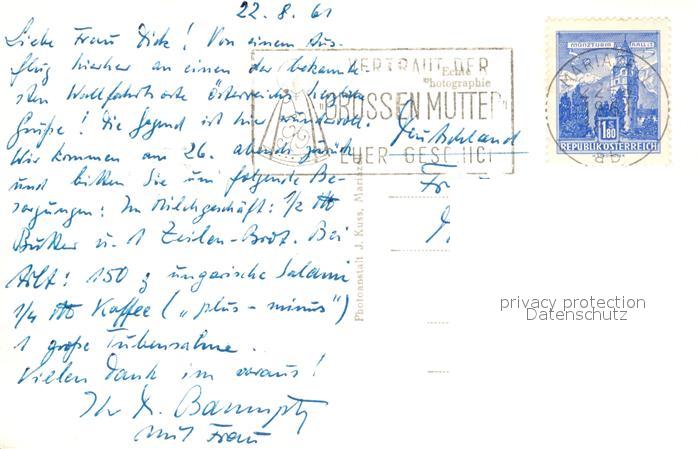 22.8.61
Liebe Frau Dick! Von einem Aus-
flug hierher an einen der bekannte-
sten Wallfahrtsorte Österreichs herzl.
Grüße! Die Gegend ist hier wundervoll.
Wir kommen am 26. abends zurück
und bitten Sie um folgende Be-
sorgungen: Im Milchgeschäft: 1/2 ℔
Butter u. 1 Zeilen-Brot. Bei
150 g ungarische Salami
1/4 ℔ Kaffee („plus-minus")
1 große Tubensahne.
Vielen Dank im voraus!
Ihr
mit Frau
VERTRAUT DER
„GROSSEN MUTTER"
EUER GESCHICK
Echte
Photographie
Photoanstalt J. Kuss, Mariaz
Deutschland
Fr
MÜNZTURM HALL i.T.
1.80
REPUBLIK ÖSTERREICH
MARIAZELL
privacy protection
Datenschutz